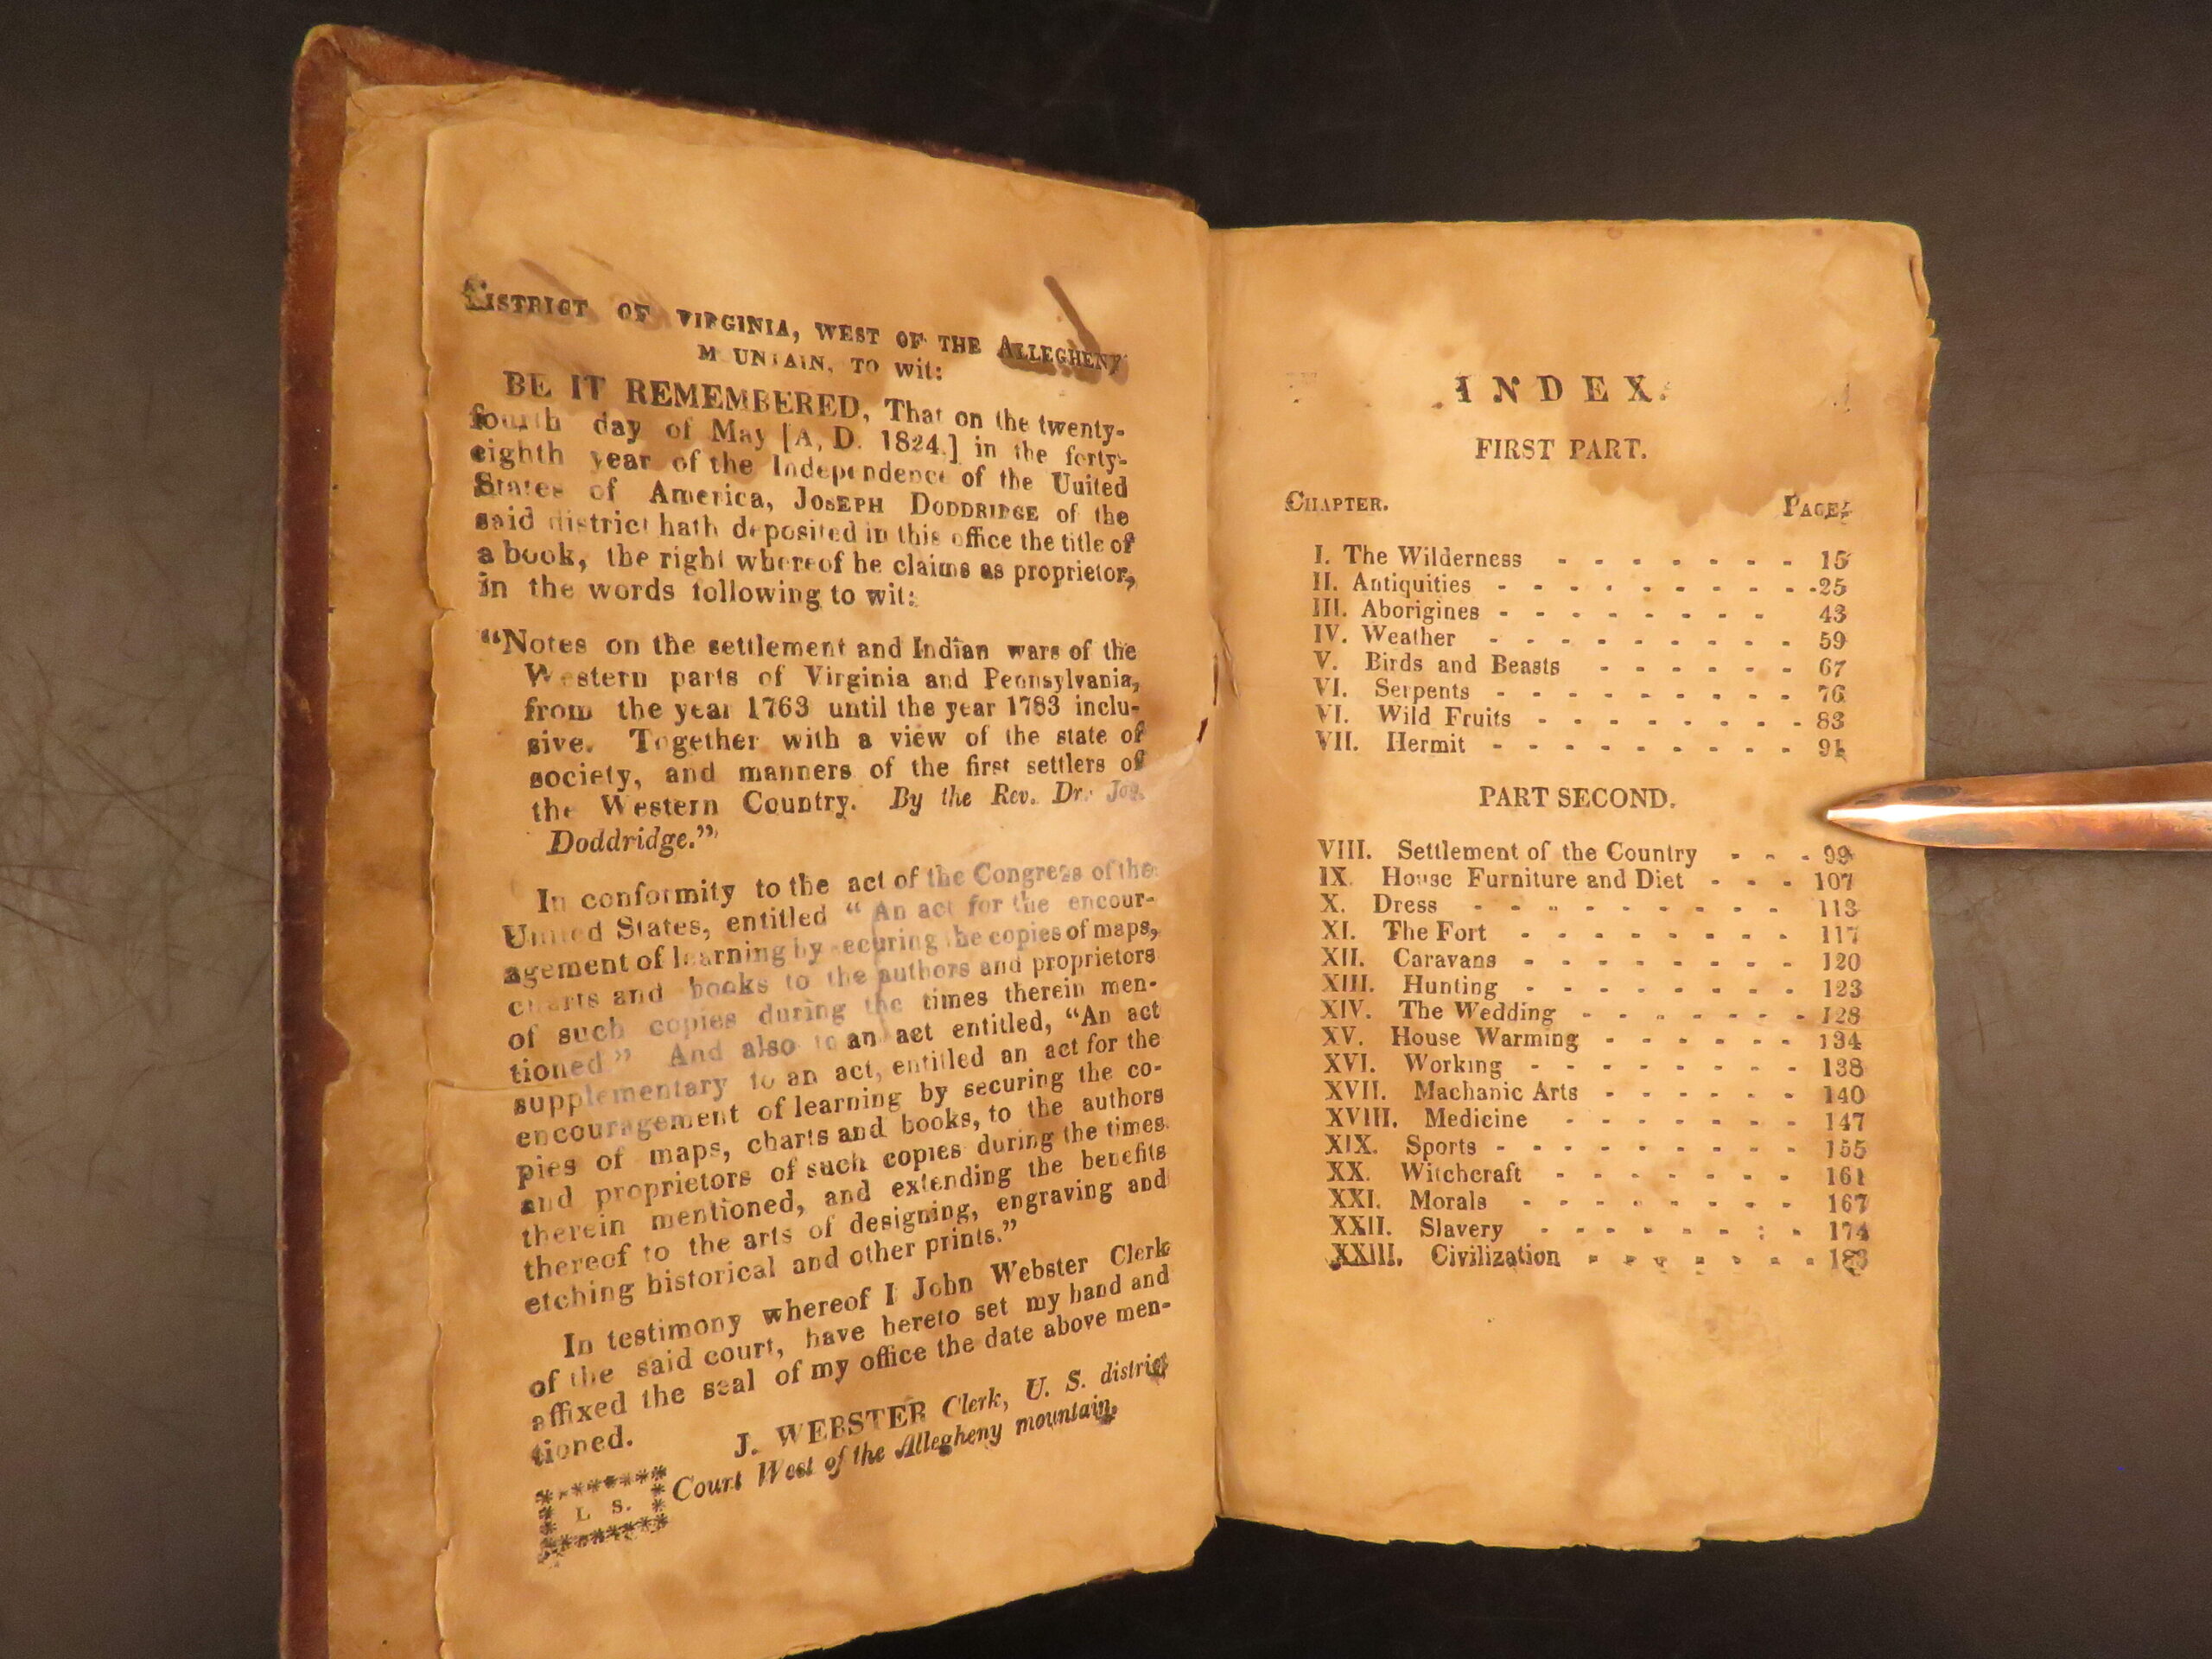 DISTRICT OF VIRGINIA, WEST OF THE ALLEGHENY
M UNTAIN, TO wit:
BE IT REMEMBERED, That on the twenty-
fourth day of May [A, D. 1824.] in the forty-
eighth year of the Independence of the Uuited
States of America, JOSEPH DODDRIDGE of the
said district hath deposited in this office the title of
a book, the right whereof he claims as proprietor,
in the words following to wit:
"Notes on the settlement and Indian wars of the
Western parts of Virginia and Pennsylvania,
from the year 1763 until the year 1783 inclu-
sive. Together with a view of the state of
society, and manners of the first settlers of
the Western Country. By the Rev. Dr. Jos.
Doddridge."
In conformity to the act of the Congress of the
United States, entitled "An act for the encour-
agement of learning by securing the copies of maps,
charts and books to the authors and proprietors
of such copies during the times therein men-
tioned." And also to an act entitled, "An act
supplementary to an act, entitled an act for the
encouragement of learning by securing the co-
pies of maps, charts and books, to the authors
and proprietors of such copies during the times
therein mentioned, and extending the benefits
thereof to the arts of designing, engraving and
etching historical and other prints."
In testimony whereof I John Webster Clerk
of the said court, have hereto set my hand and
affixed the seal of my office the date above men-
tioned.
J. WEBSTER Clerk, U. S. district
Court West of the Allegheny mountain.
L S.
INDEX.
FIRST PART.
CHAPTER. PAGE.
I. The Wilderness - - - - - - - 15
II. Antiquities - - - - - - - - - -25
III. Aborigines - - - - - - - - - 43
IV. Weather - - - - - - - - - 59
V. Birds and Beasts - - - - - - 67
VI. Serpents - - - - - - - - - 76
VI. Wild Fruits - - - - - - - - - 83
VII. Hermit - - - - - - - - - 91
PART SECOND.
VIII. Settlement of the Country - - - 99
IX. House Furniture and Diet - - - 107
X. Dress - - - - - - - - - 113
XI. The Fort - - - - - - - - 117
XII. Caravans - - - - - - - - 120
XIII. Hunting - - - - - - - - 123
XIV. The Wedding - - - - - - - 128
XV. House Warming - - - - - - 134
XVI. Working - - - - - - - - 138
XVII. Machanic Arts - - - - - - 140
XVIII. Medicine - - - - - - - 147
XIX. Sports - - - - - - - - - 155
XX. Witchcraft - - - - - - - 161
XXI. Morals - - - - - - - - 167
XXII. Slavery - - - - - - - : - 174
XXIII. Civilization - - - - - - - - 183